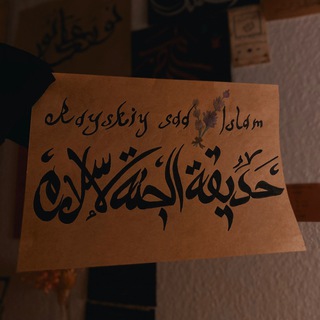 Rayskiy sad Islam
حديقة الجنة لإسلام